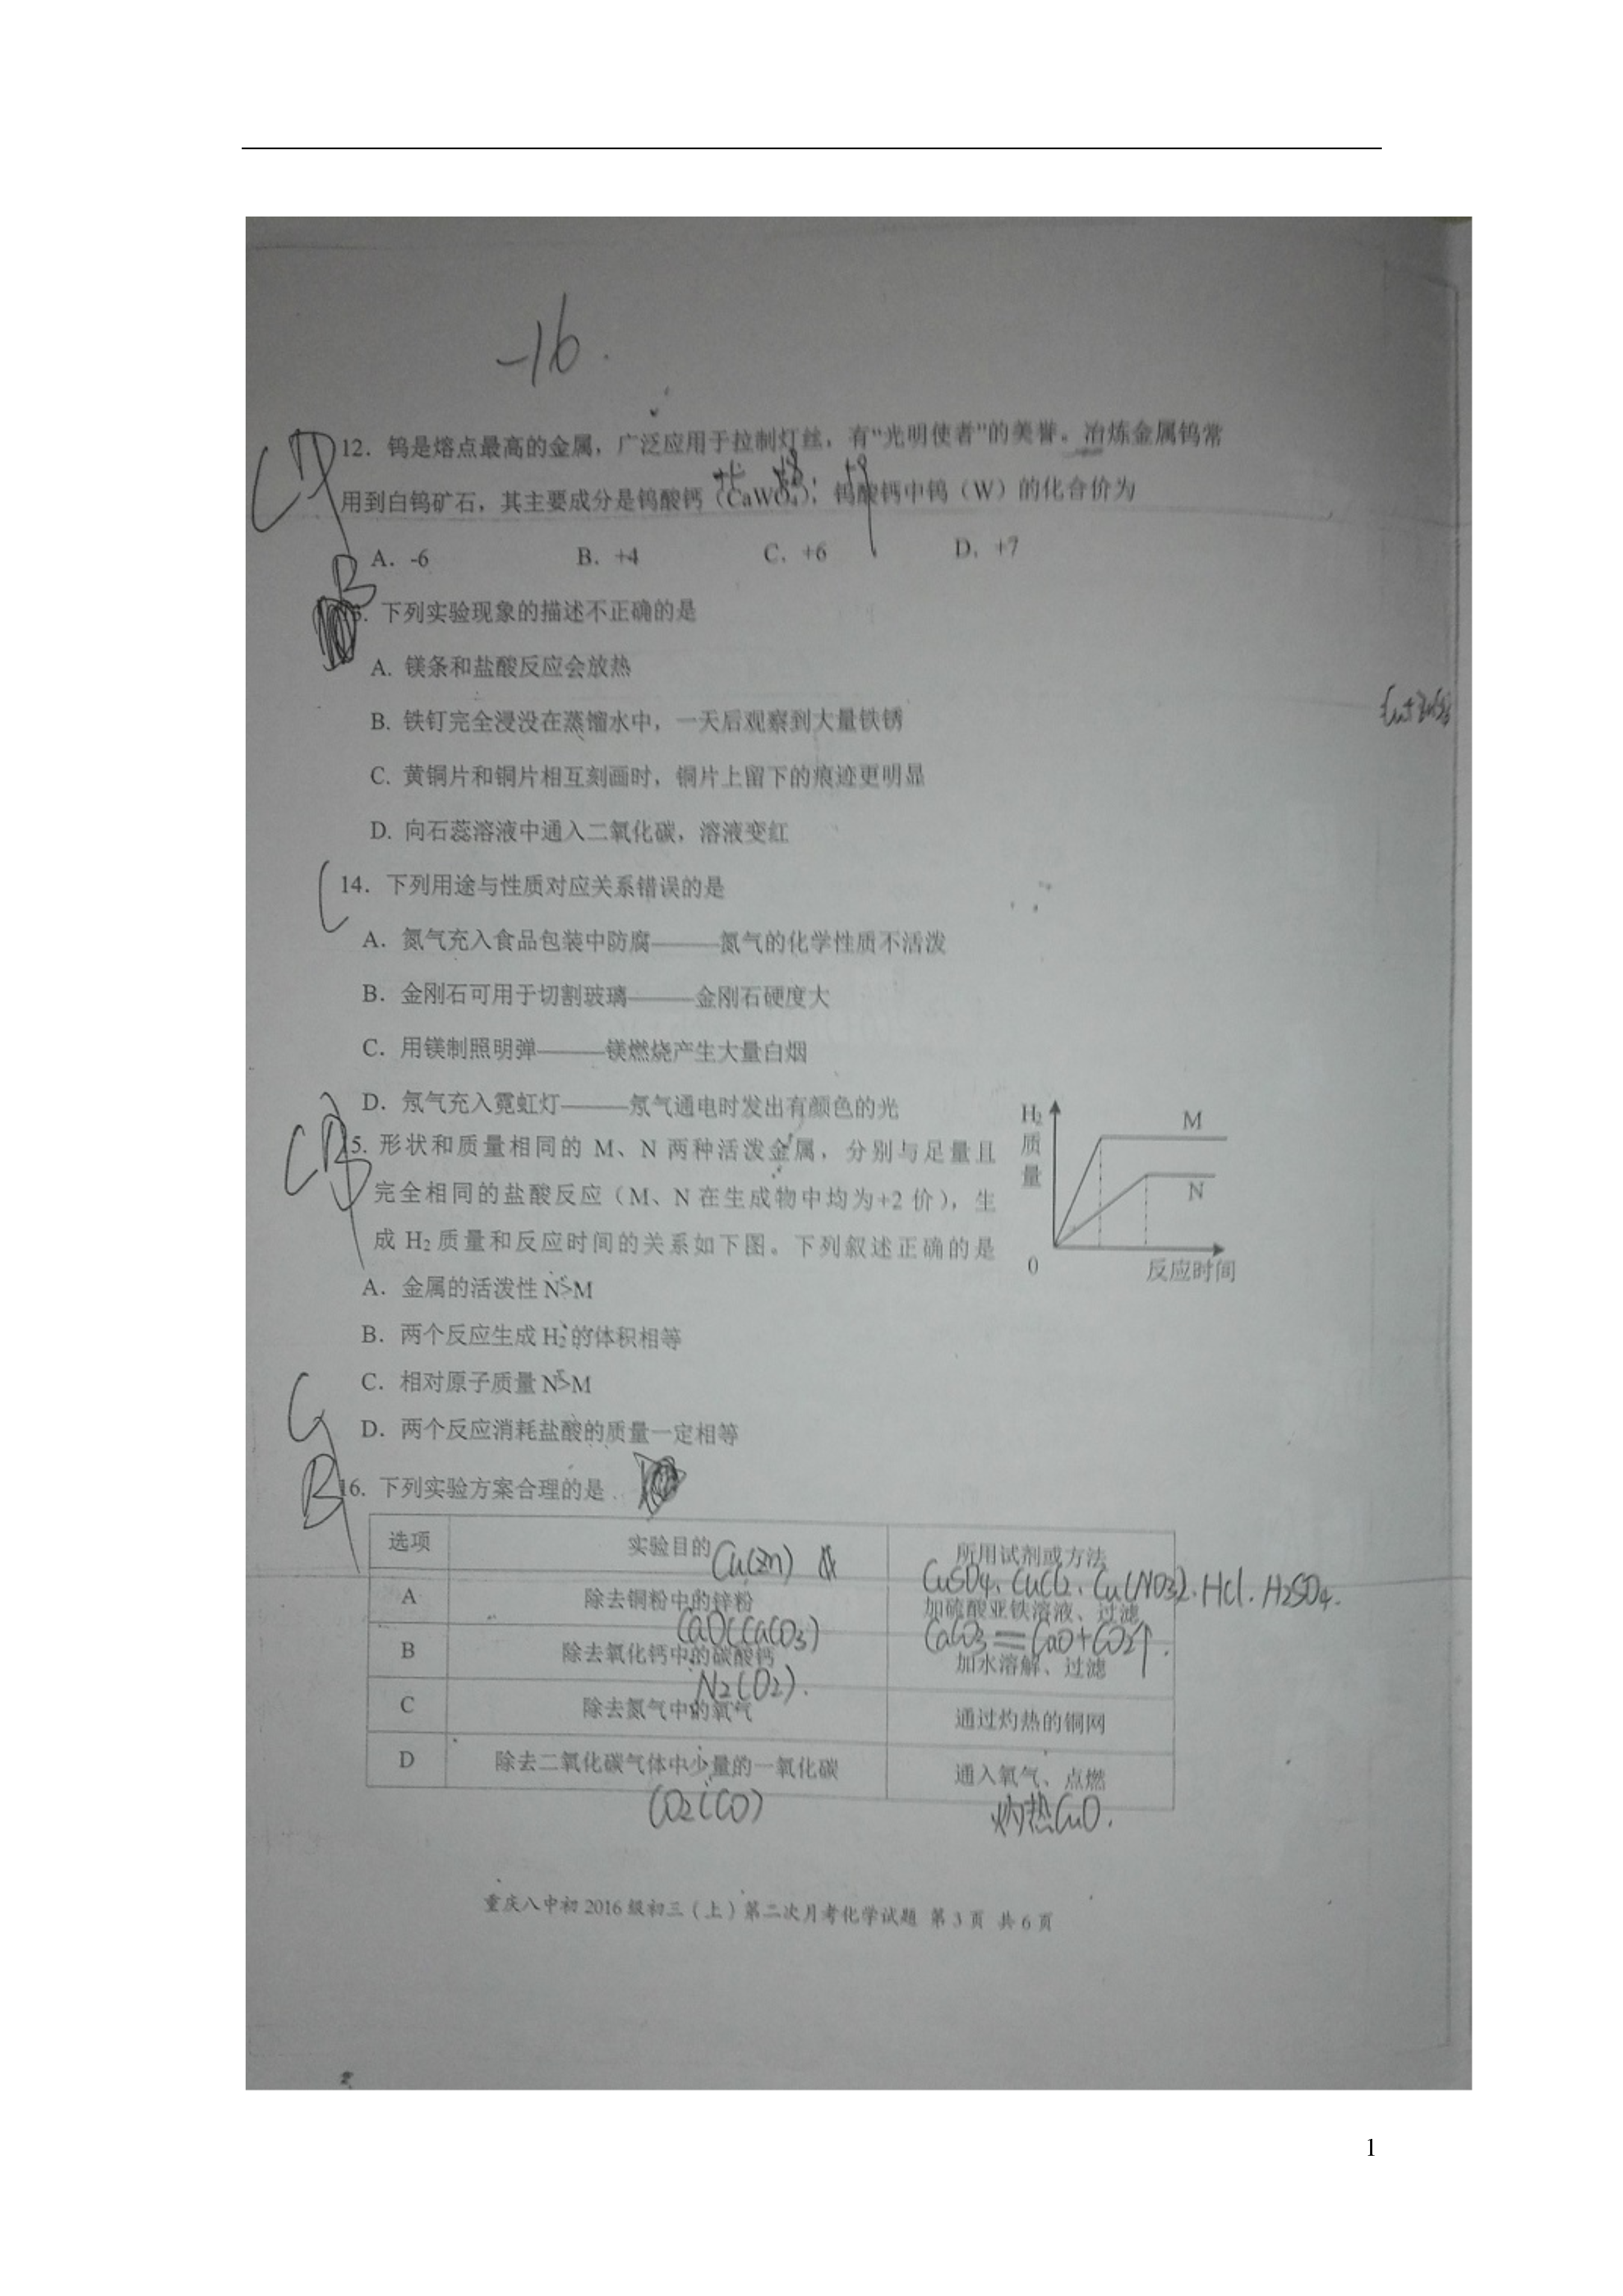 -16.
12．钨是熔点最高的金属，广泛应用于拉制灯丝，有“光明使者”的美誉。冶炼金属钨常
用到白钨矿石，其主要成分是钨酸钙（CaWO₄）；钨酸钙中钨（W）的化合价为
A．-6 B．+4 C．+6 D．+7
B
下列实验现象的描述不正确的是
A. 镁条和盐酸反应会放热
B. 铁钉完全浸没在蒸馏水中，一天后观察到大量铁锈
C. 黄铜片和铜片相互刻画时，铜片上留下的痕迹更明显
D. 向石蕊溶液中通入二氧化碳，溶液变红
C
14．下列用途与性质对应关系错误的是
A．氮气充入食品包装中防腐———氮气的化学性质不活泼
B．金刚石可用于切割玻璃———金刚石硬度大
C．用镁制照明弹———镁燃烧产生大量白烟
D．氖气充入霓虹灯———氖气通电时发出有颜色的光
C
15．形状和质量相同的 M、N 两种活泼金属，分别与足量且
完全相同的盐酸反应（M、N 在生成物中均为+2 价），生
成 H₂ 质量和反应时间的关系如下图。下列叙述正确的是
H₂
质
量
M
N
0
反应时间
A．金属的活泼性 N>M
B．两个反应生成 H₂ 的体积相等
C．相对原子质量 N>M
D．两个反应消耗盐酸的质量一定相等
C
B
16．下列实验方案合理的是
选项 实验目的 所用试剂或方法
Cu(Zn)
CuSO4、CuCl2、Cu(NO3)2.HCl.H2SO4.
A 除去铜粉中的锌粉 加硫酸亚铁溶液、过滤
CaO(CaCO3)
CaCO3=CaO+CO2↑.
B 除去氧化钙中的碳酸钙 加水溶解、过滤
N2(O2).
C 除去氮气中的氧气 通过灼热的铜网
D 除去二氧化碳气体中少量的一氧化碳 通入氧气、点燃
CO2(CO) 灼热CuO.
重庆八中初 2016 级初三（上）第二次月考化学试题 第 3 页 共 6 页
1